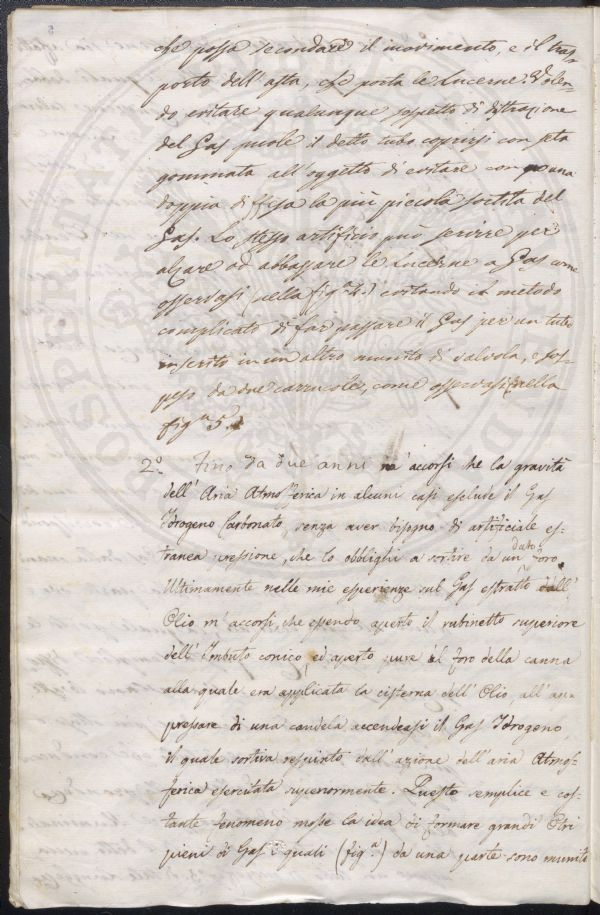 che possa secondare il movimento, e il tras-
porto dell'asta, che porta le Lucerne. Volen-
do evitare qualunque sospetto di distrazione
del Gas puole il detto tubo coprirsi con seta
gommata all'oggetto di evitare con una
doppia difesa la più piccola sortita del
Gas. Lo stesso artificio può servire per
alzare ed abbassare le Lucerne a Gas come
osservasi (nella fig.ª 4.) evitando il metodo
complicato di far passare il Gas per un tubo
inserito in un altro munito di valvola, e sos-
peso da due carrucole, come osservasi nella
fig.ª 5.ª
2.º Fino da due anni m'accorsi che la gravità
dell'Aria Atmosferica in alcuni casi esclude il Gas
Idrogeno Carbonato senza aver bisogno di artificiale es-
tranea pressione, che lo obblighi a sortire da un dato foro.
Ultimamente nelle mie esperienze sul Gas estratto dall'
Olio m'accorsi, che essendo aperto il rubinetto superiore
dell'Imbuto conico, ed aperto pure il foro della canna
alla quale era applicata la cisterna dell'Olio, all'ap-
pressare di una candela accendeasi il Gas Idrogeno,
il quale sortiva respinto dall'azione dell'aria Atmos-
ferica esercitata superiormente. Questo semplice e cos-
tante fenomeno mosse la idea di formare grandi Otri
pieni di Gas i quali (fig.ª) da una parte sono muniti